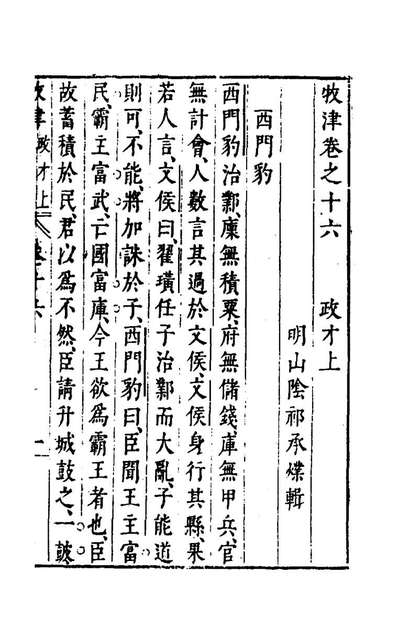 牧津卷之十六　政才上
明山陰祁承㸁輯
西門豹
西門豹治鄴、廩無積粟、府無儲錢、庫無甲兵、官
無計會、人數言其過於文侯、文侯身行其縣、果
若人言、文侯曰、翟璜任子治鄴而大亂、子能道
則可、不能、將加誅於子、西門豹曰、臣聞王主富
民、霸主富武、亡國富庫、今王欲爲霸王者也、臣
故蓄積於民、君以爲不然、臣請升城鼓之、一鼓
牧津 政才上 卷十六 一